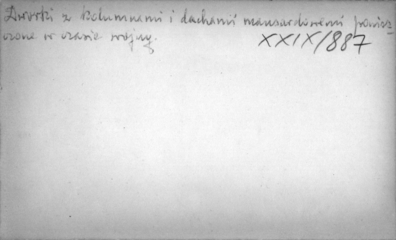 Dworki z kolumnami i dachami mansardowemi zniszczone w czasie wojny.
XXIX/887